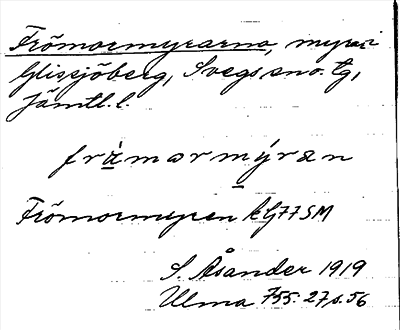 Frömormyrarna, myrar i
Glissjöberg, Svegs sn o. tg,
Jämtl. l.
frä̀marmýran
Frömormyren kG77SM
S. Åsander 1919
Ulma 755: 27, s. 56